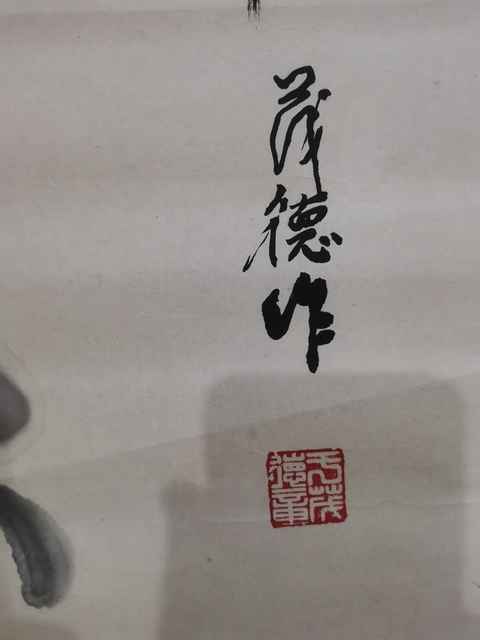 茂德作
茂
德章